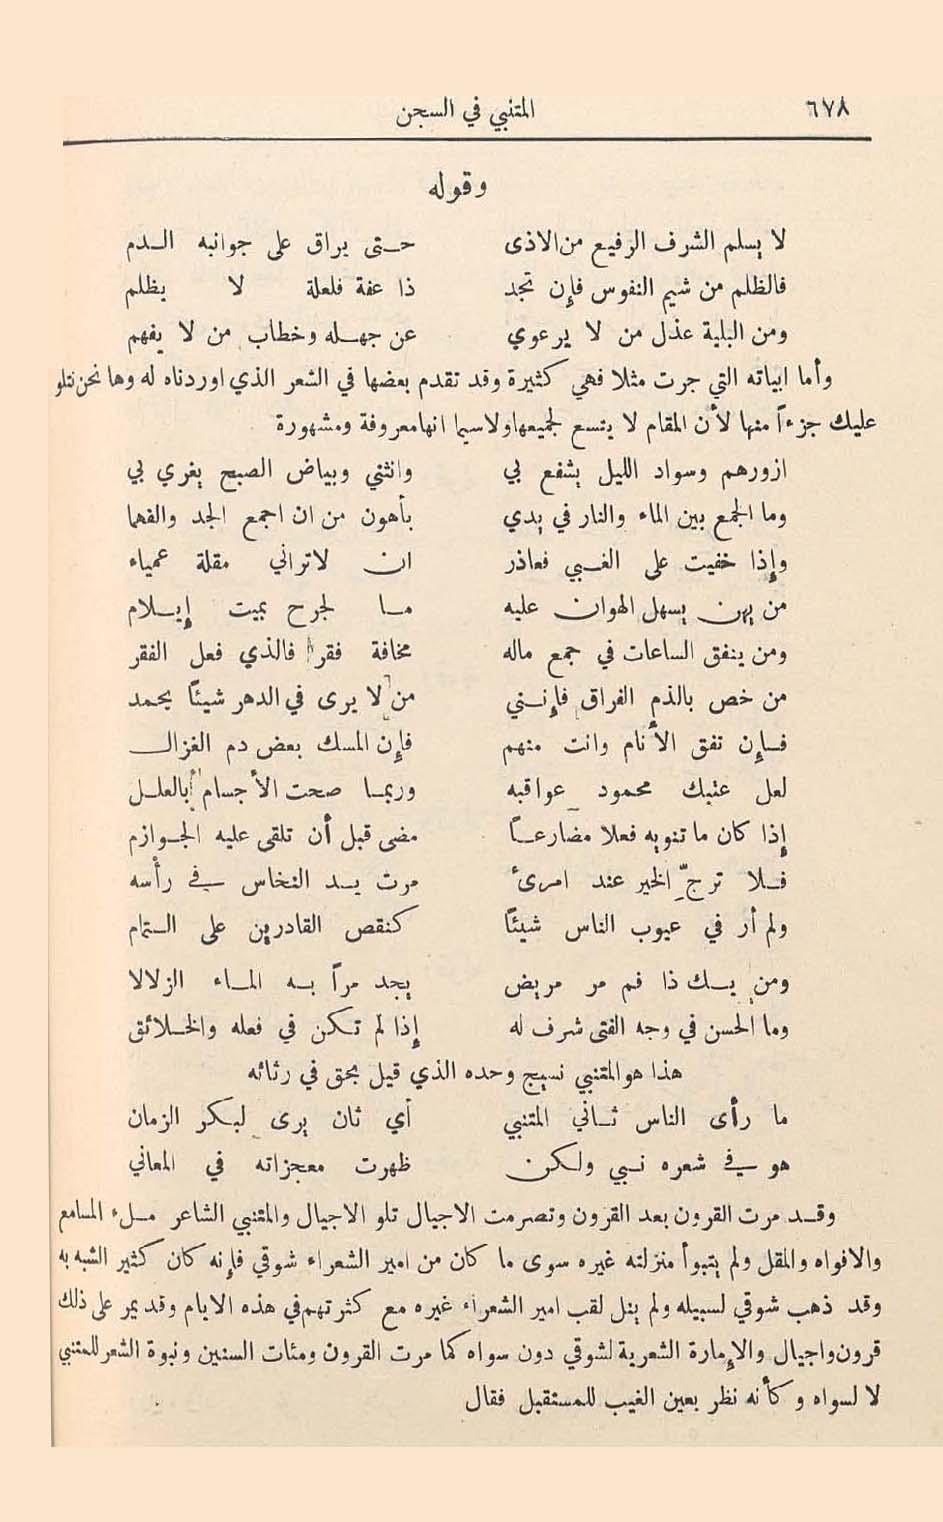 ٦٧٨ المتنبي في السجن
وقوله
لا يسلم الشرف الرفيع من الاذى حتى يراق على جوانبه الدم
فالظلم من شيم النفوس فإن تجد ذا عفة فلعلة لا يظلم
ومن البلية عذل من لا يرعوي عن جهله وخطاب من لا يفهم
وأما ابياته التي جرت مثلا فهي كثيرة وقد تقدم بعضها في الشعر الذي اوردناه له وها نحن نتلو
عليك جزءاً منها لأن المقام لا يتسع لجميعها ولا سيما انها معروفة ومشهورة
ازورهم وسواد الليل يشفع بي وانثني وبياض الصبح يغري بي
وما الجمع بين الماء والنار في يدي بأهون من ان اجمع الجد والفهما
وإذا خفيت على الغبي فعاذر ان لا تراني مقلة عمياء
من يهن يسهل الهوان عليه ما لجرح بميت إيلام
ومن ينفق الساعات في جمع ماله مخافة فقر فالذي فعل الفقر
من خص بالذم الفراق فإنني من لا يرى في الدهر شيئاً يحمد
فإن تفق الأنام وانت منهم فإن المسك بعض دم الغزال
لعل عتبك محمود عواقبه وربما صحت الأجسام بالعلل
إذا كان ما تنويه فعلا مضارعاً مضى قبل أن تلقى عليه الجوازم
فلا ترجّ الخير عند امرئ مرت يد النخاس في رأسه
ولم أر في عيوب الناس شيئاً كنقص القادرين على التمام
ومن يك ذا فم مر مريض يجد مراً به الماء الزلالا
وما الحسن في وجه الفتى شرف له إذا لم تكن في فعله والخلائق
هذا هو المتنبي نسيج وحده الذي قيل بحق في رثائه
ما رأى الناس ثاني المتنبي أي ثان يرى لبكر الزمان
هو في شعره نبي ولكن ظهرت معجزاته في المعاني
وقد مرت القرون بعد القرون وتصرمت الاجيال تلو الاجيال والمتنبي الشاعر ملء المسامع
والافواه والمقل ولم يتبوأ منزلته غيره سوى ما كان من امير الشعراء شوقي فإنه كان كثير الشبه به
وقد ذهب شوقي لسبيله ولم ينل لقب امير الشعراء غيره مع كثرتهم في هذه الايام وقد يمر على ذلك
قرون واجيال والإمارة الشعرية لشوقي دون سواه كما مرت القرون ومئات السنين ونبوة الشعر للمتنبي
لا لسواه وكأنه نظر بعين الغيب للمستقبل فقال